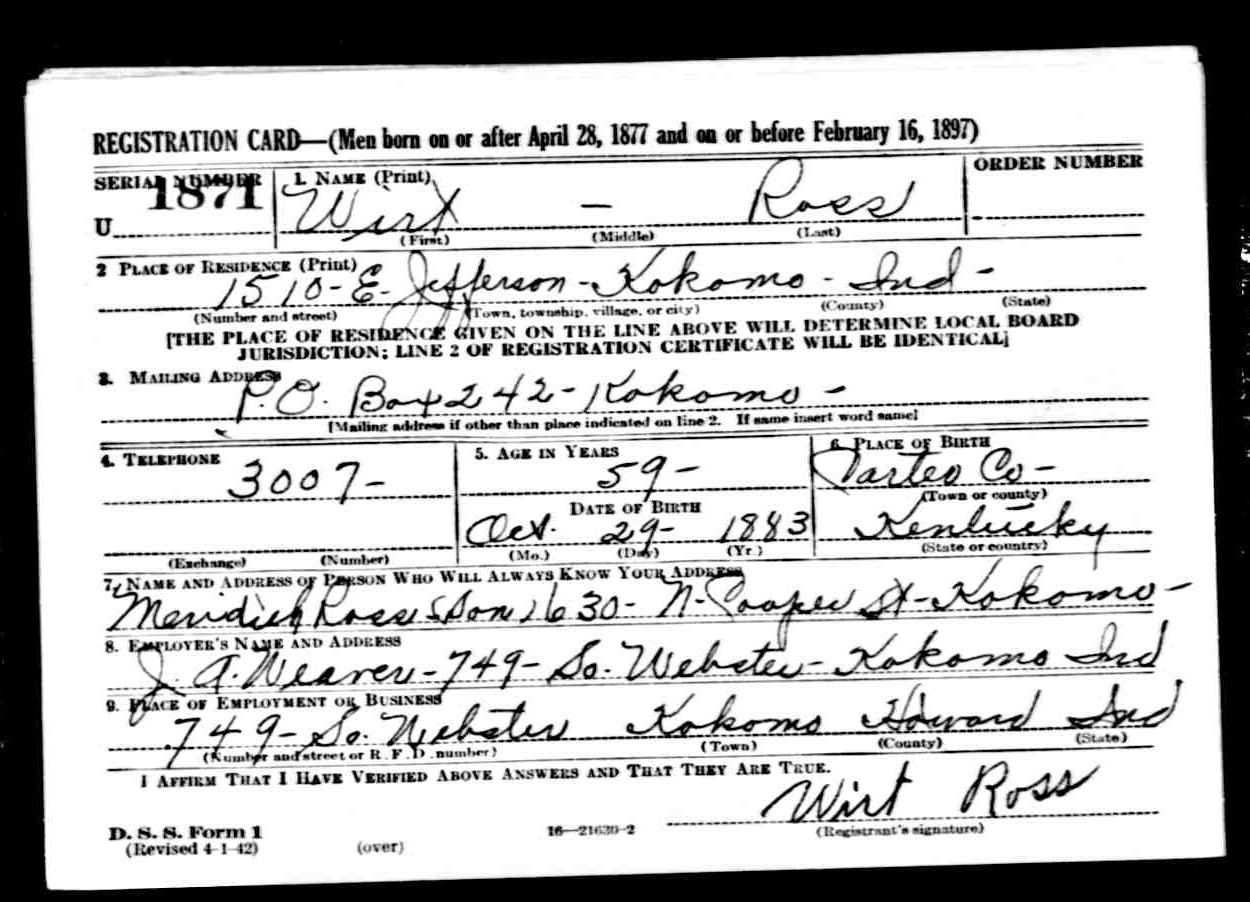 REGISTRATION CARD—(Men born on or after April 28, 1877 and on or before February 16, 1897)
SERIAL NUMBER 1. NAME (Print) ORDER NUMBER
1871
U Wirt - Ross
(First) (Middle) (Last)
2 PLACE OF RESIDENCE (Print)
1510-E-Jefferson-Kokomo-Ind-
(Number and street) (Town, township, village, or city) (County) (State)
[THE PLACE OF RESIDENCE GIVEN ON THE LINE ABOVE WILL DETERMINE LOCAL BOARD
JURISDICTION; LINE 2 OF REGISTRATION CERTIFICATE WILL BE IDENTICAL]
3. MAILING ADDRESS
P.O. Box 242-Kokomo-
[Mailing address if other than place indicated on line 2. If same insert word same]
4. TELEPHONE 5. AGE IN YEARS 6. PLACE OF BIRTH
3007- 59- Co-
DATE OF BIRTH (Town or county)
Oct. 29- 1883 Kentucky
(Exchange) (Number) (Mo.) (Day) (Yr.) (State or country)
7. NAME AND ADDRESS OF PERSON WHO WILL ALWAYS KNOW YOUR ADDRESS
Ross Son 1630- N-Cooper St-Kokomo-
8. EMPLOYER'S NAME AND ADDRESS
J. A. Weaver-749-So. Webster-Kokomo Ind
9. PLACE OF EMPLOYMENT OR BUSINESS
749-So. Webster Kokomo Howard Ind
(Number and street or R. F. D. number) (Town) (County) (State)
I AFFIRM THAT I HAVE VERIFIED ABOVE ANSWERS AND THAT THEY ARE TRUE.
Wirt Ross
D. S. S. Form 1 16—21630-2 (Registrant's signature)
(Revised 4-1-42) (over)